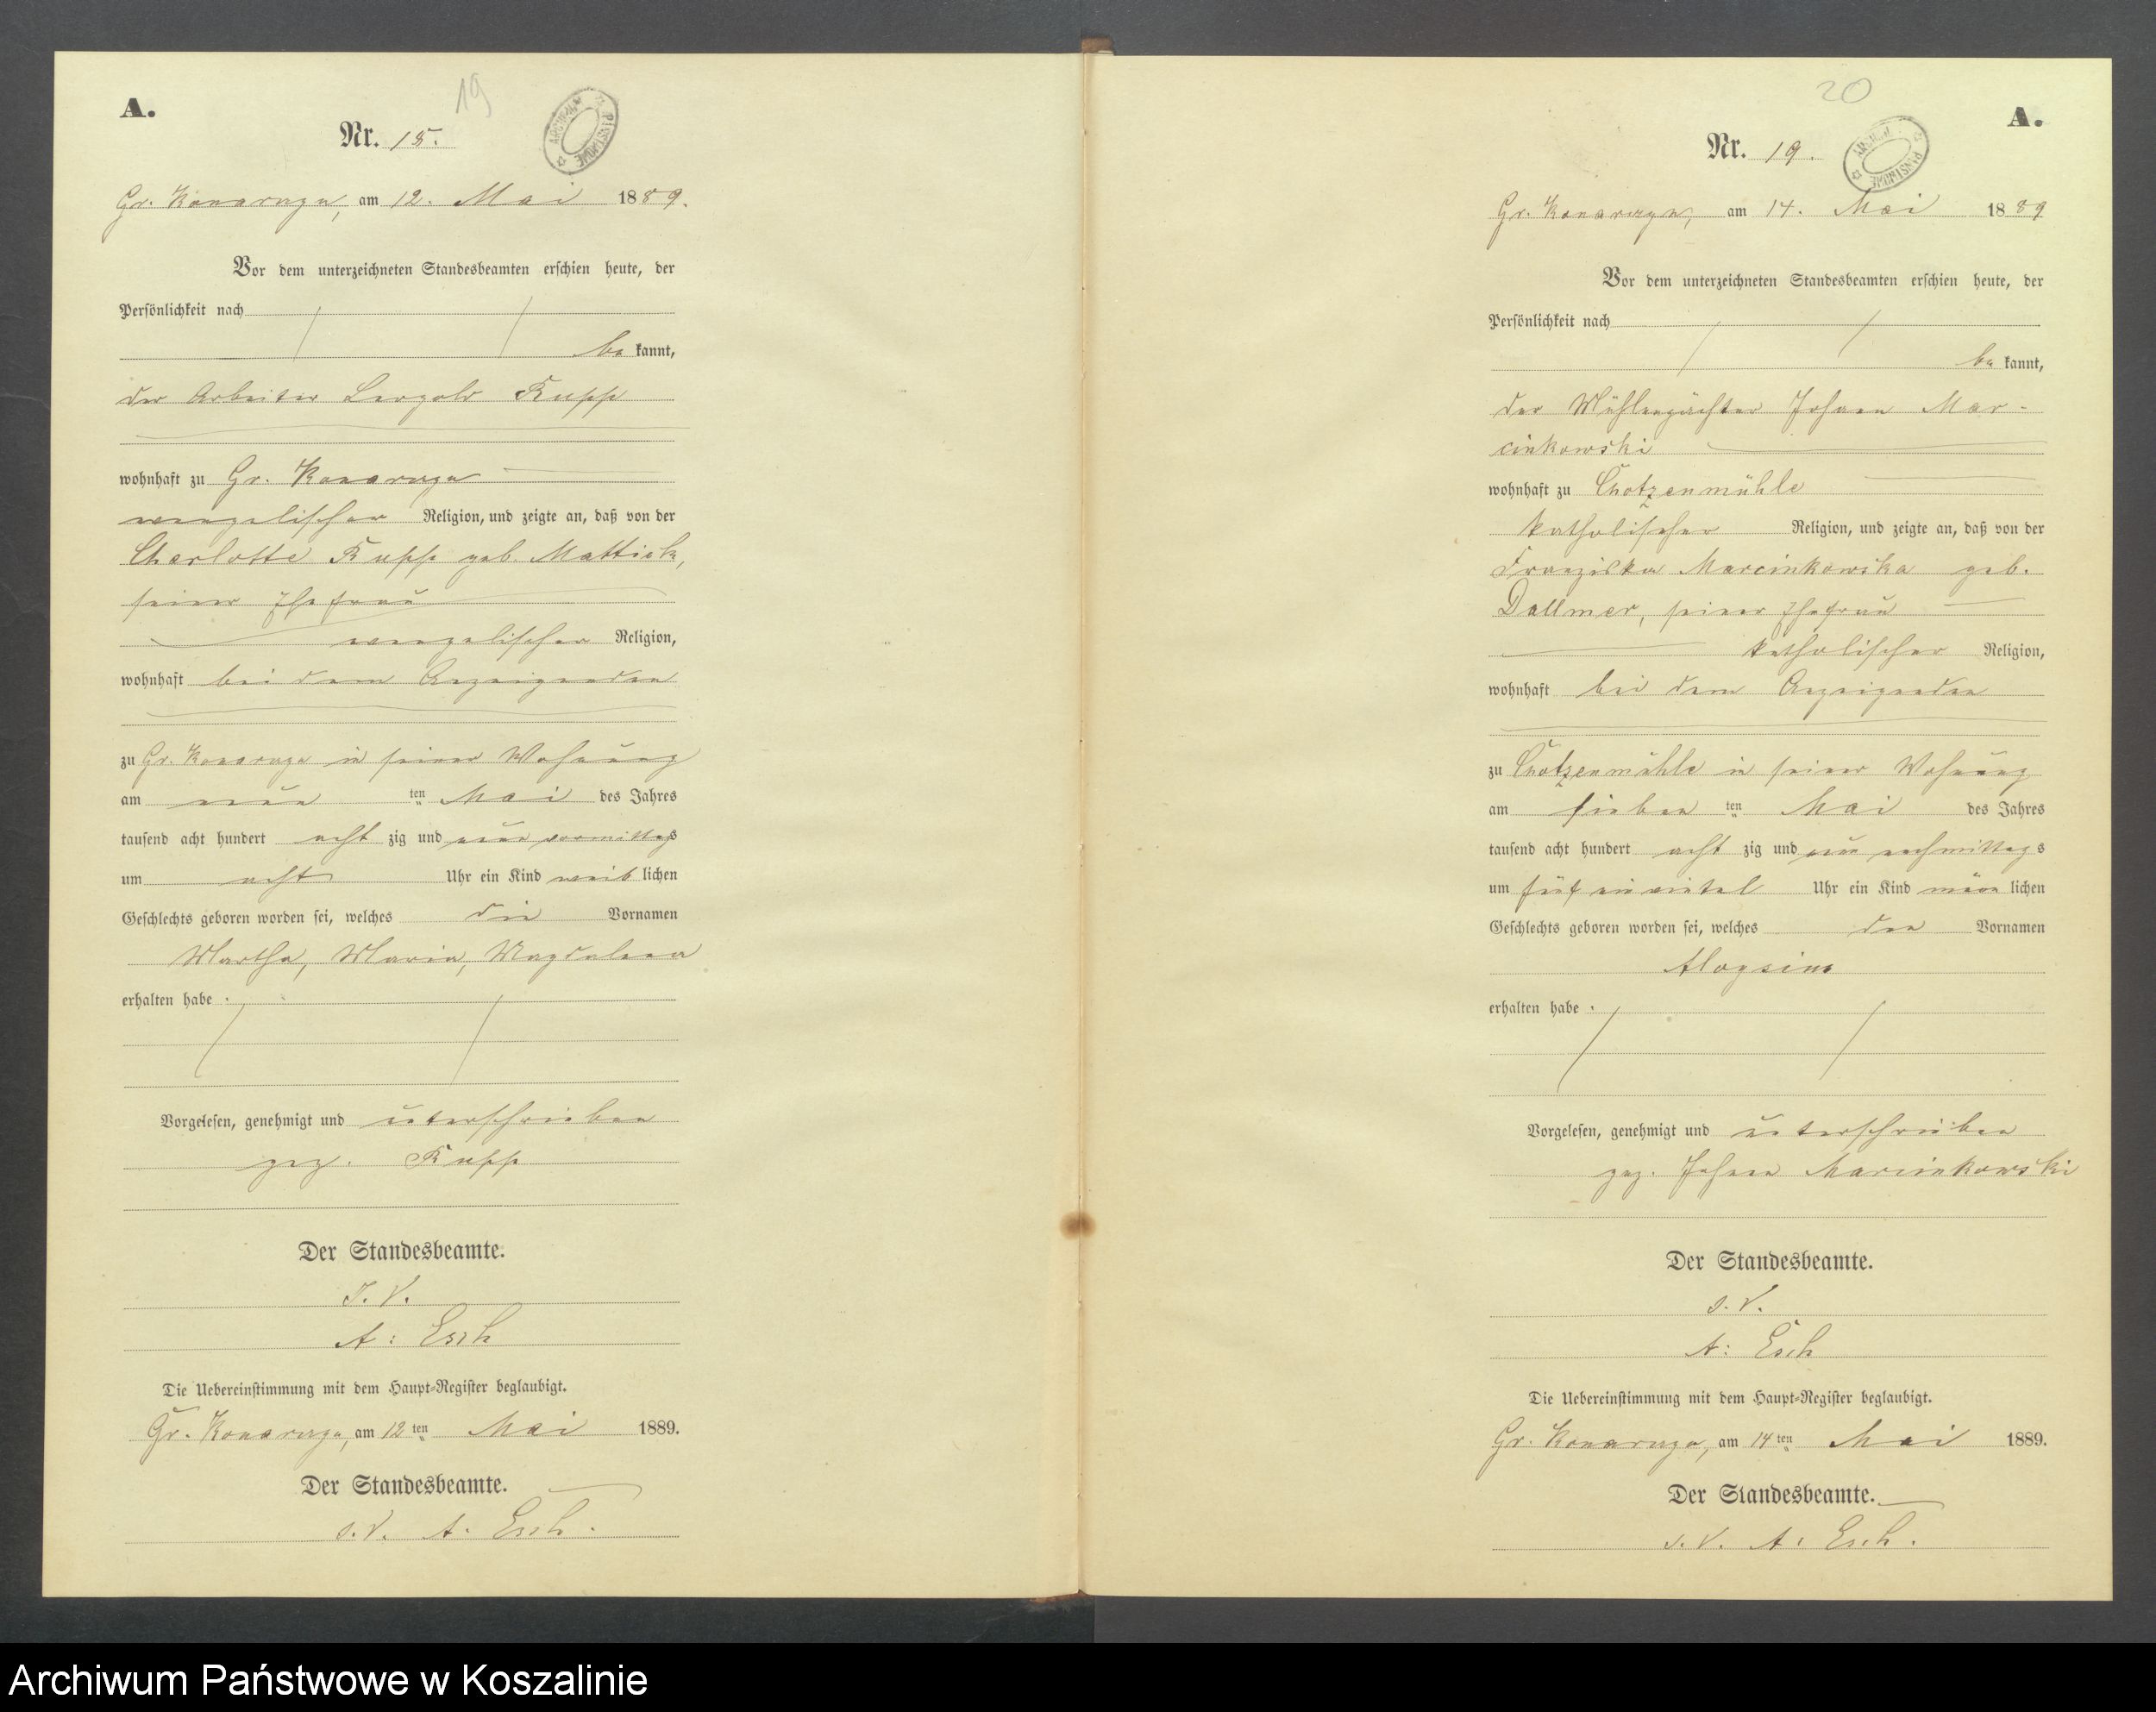 19
A.
Nr. 15.
Gr. Konarczyn, am 12. Mai 1889.
Vor dem unterzeichneten Standesbeamten erschien heute, der
Persönlichkeit nach
be kannt,
der Arbeiter Leopold Rupp
wohnhaft zu Gr. Konarczyn
evangelischer Religion, und zeigte an, daß von der
Charlotte Rupp geb. Mattick,
seiner Ehefrau
evangelischer Religion,
wohnhaft bei dem Anzeigenden
zu Gr. Konarczyn in seiner Wohnung
am neun ten Mai des Jahres
tausend acht hundert acht zig und neun vormittags
um acht Uhr ein Kind weib lichen
Geschlechts geboren worden sei, welches die Vornamen
Martha, Maria, Magdalena
erhalten habe.
Vorgelesen, genehmigt und unterschrieben
gez. Rupp
Der Standesbeamte.
I. V.
A: Esch
Die Uebereinstimmung mit dem Haupt-Register beglaubigt.
Gr. Konarczyn, am 12 ten Mai 1889.
Der Standesbeamte.
I. V. A. Esch.
20
A.
Nr. 19.
Gr. Konarczyn, am 14. Mai 1889
Vor dem unterzeichneten Standesbeamten erschien heute, der
Persönlichkeit nach
be kannt,
der Mühlenpächter Johann Mar-
cinkowski
wohnhaft zu Chotzenmühle
katholischer Religion, und zeigte an, daß von der
Franziska Marcinkowska geb.
Dallmer, seiner Ehefrau
katholischer Religion,
wohnhaft bei dem Anzeigenden
zu Chotzenmühle in seiner Wohnung
am sieben ten Mai des Jahres
tausend acht hundert acht zig und neun nachmittags
um fünf ein viertel Uhr ein Kind männ lichen
Geschlechts geboren worden sei, welches den Vornamen
Aloysius
erhalten habe.
Vorgelesen, genehmigt und unterschrieben
gez. Johann Marcinkowski
Der Standesbeamte.
I. V.
A: Esch
Die Uebereinstimmung mit dem Haupt-Register beglaubigt.
Gr. Konarczyn, am 14 ten Mai 1889.
Der Standesbeamte.
I. V. A: Esch.
Archiwum Państwowe w Koszalinie